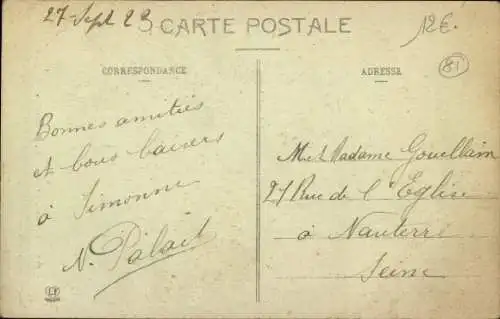 27 Sept 23
CARTE POSTALE
12€.
81
CORRESPONDANCE
ADRESSE
Bonnes amitiés
et bons baisers
à Simonne
N. Palait
M et Madame Gouellain
27 Rue de l'Eglise
à Nanterre
Seine